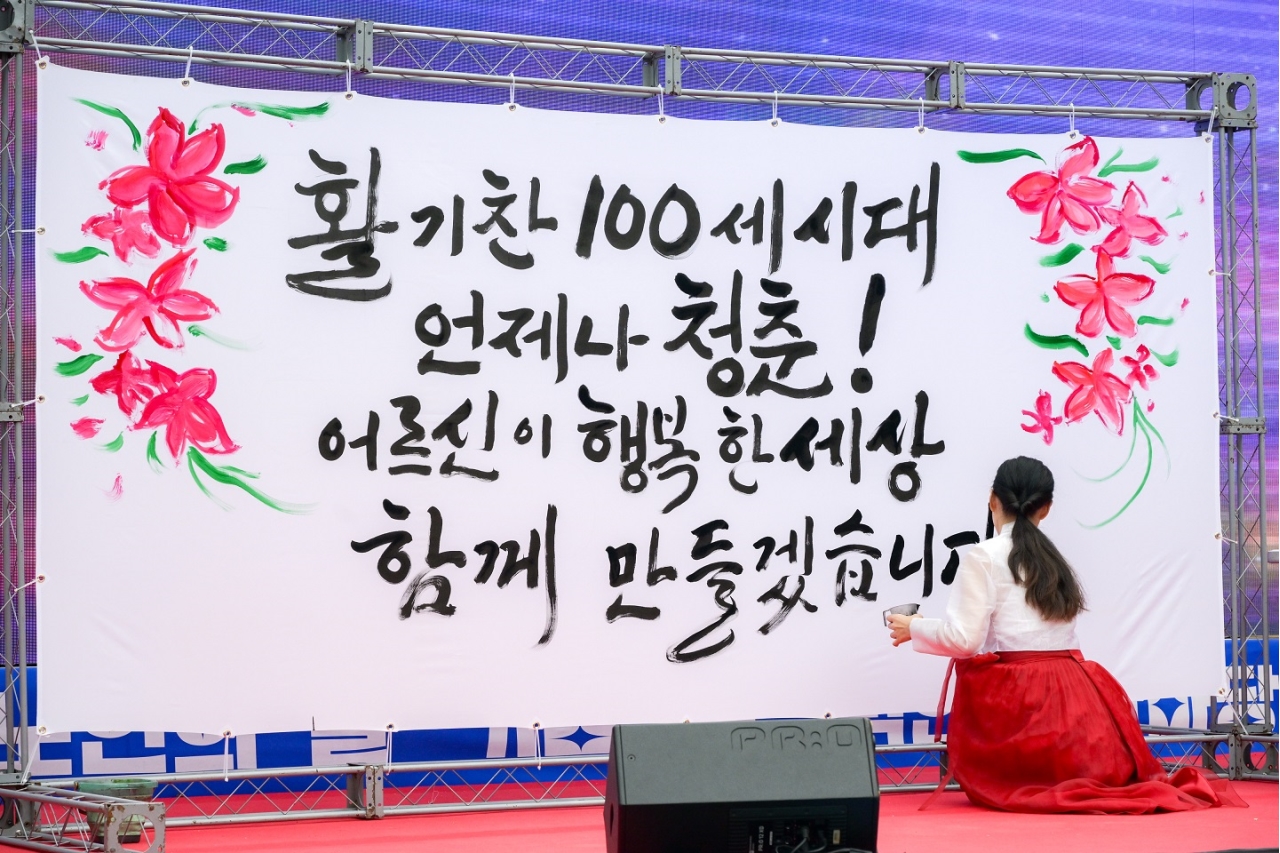 활기찬 100세시대
언제나 청춘!
어르신이 행복한세상
함께 만들겠습니다
노인의 날
PR:O